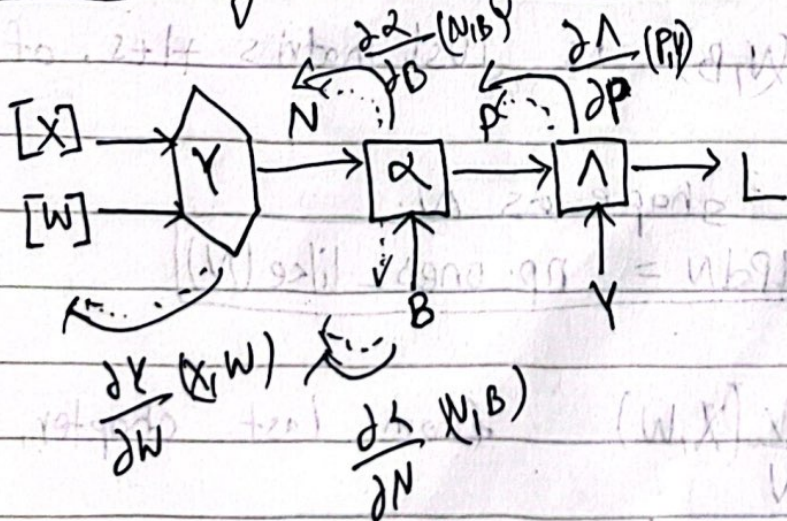 ∂α/∂B (N,B)
∂Λ/∂P (P,Y)
[X]
N
P
γ
α
Λ
L
[W]
B
Y
∂γ/∂W (X,W)
∂α/∂N (N,B)